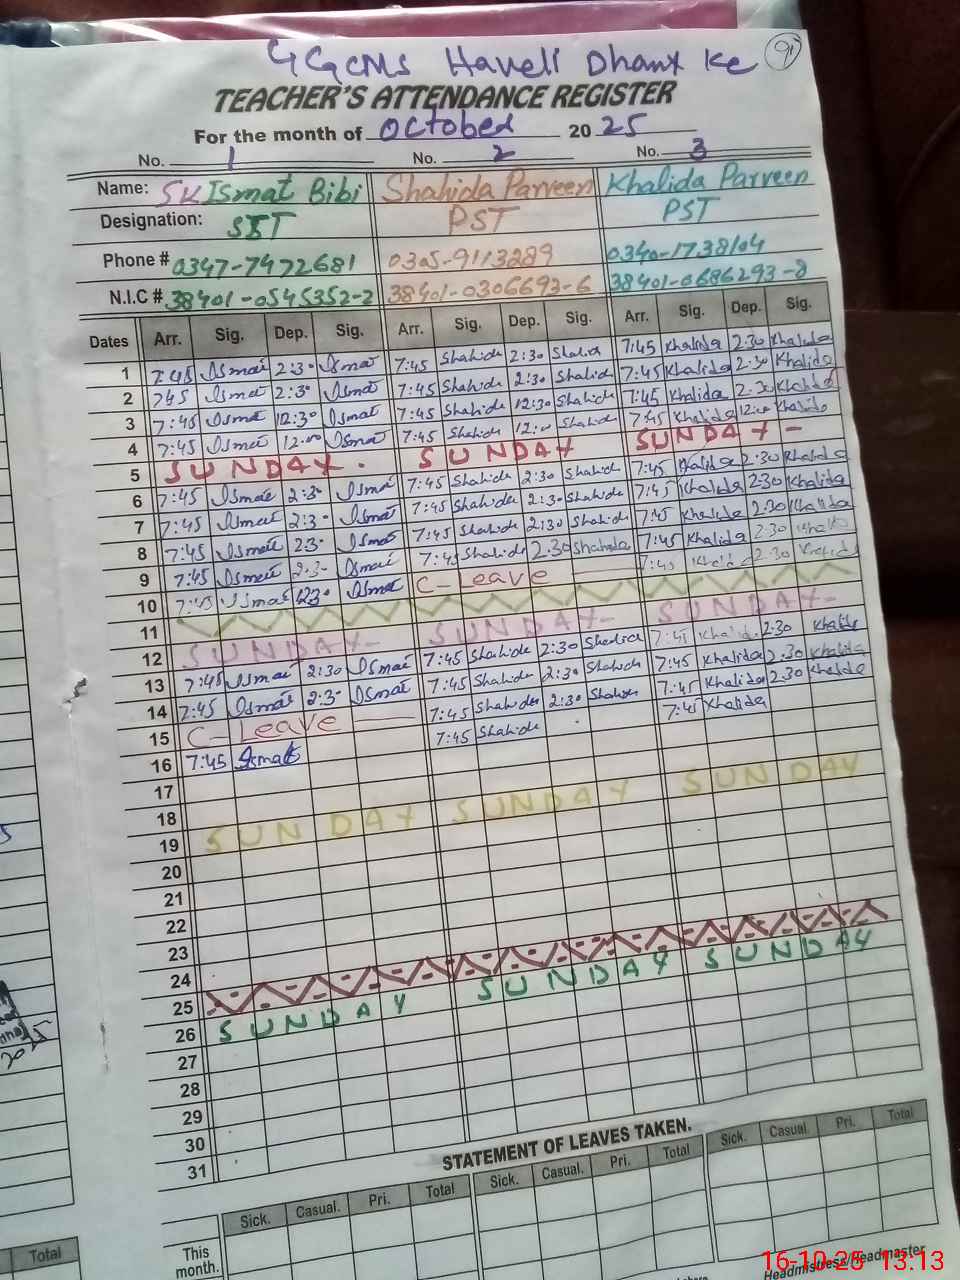 GGCMS Haveli Dhant Ke 91
TEACHER'S ATTENDANCE REGISTER
For the month of October 2025
No. 1 No. 2 No. 3
Name: SK Ismat Bibi Shahida Parveen Khalida Parveen
Designation: SST PST PST
Phone # 0347-7472681 0305-9113289 0340-1738104
N.I.C # 38401-0545352-2 38401-0306693-6 38401-0686293-8
Dates Arr. Sig. Dep. Sig. Arr. Sig. Dep. Sig. Arr. Sig. Dep. Sig.
1 7:45 Ismat 2:30 Ismat 7:45 Shahida 2:30 Shahida 7:45 Khalida 2:30 Khalida
2 745 Ismat 2:30 Ismat 7:45 Shahida 2:30 Shahida 7:45 Khalida 2:30 Khalida
3 7:45 Ismat 12:30 Ismat 7:45 Shahida 12:30 Shahida 7:45 Khalida 2:30 Khalida
4 7:45 Ismat 12:00 Ismat 7:45 Shahida 12:00 Shahida 7:45 Khalida 12:00 Khalida
5 SUNDAY. SUNDAY SUNDAY -
6 7:45 Ismat 2:30 Ismat 7:45 Shahida 2:30 Shahida 7:45 Khalida 2:30 Khalida
7 7:45 Ismat 2:30 Ismat 7:45 Shahida 2:30 Shahida 7:45 Khalida 2:30 Khalida
8 7:45 Ismat 2:30 Ismat 7:45 Shahida 2:30 Shahida 7:45 Khalida 2:30 Khalida
9 7:45 Ismat 2:30 Ismat 7:45 Shahida 2:30 Shahida 7:45 Khalida 2:30 Khalida
10 7:45 Ismat 12:30 Ismat C-Leave 7:45 Khalida 2:30 Khalida
11
12 SUNDAY- SUNDAY- SUNDAY-
13 7:45 Ismat 2:30 Ismat 7:45 Shahida 2:30 Shahida 7:45 Khalida 2:30 Khalida
14 7:45 Ismat 2:30 Ismat 7:45 Shahida 2:30 Shahida 7:45 Khalida 2:30 Khalida
15 C-Leave 7:45 Shahida 2:30 Shahida 7:45 Khalida 2:30 Khalida
16 7:45 Ismat 7:45 Shahida 7:45 Khalida
17
18
19 SUNDAY SUNDAY SUNDAY
20
21
22
23
24
25
26 SUNDAY SUNDAY SUNDAY
27
28
29
30
31
STATEMENT OF LEAVES TAKEN.
Sick. Casual. Pri. Total Sick. Casual. Pri. Total Sick. Casual Pri. Total
This month.
Total
Headmistress/Headmaster
16-10-25 13:13